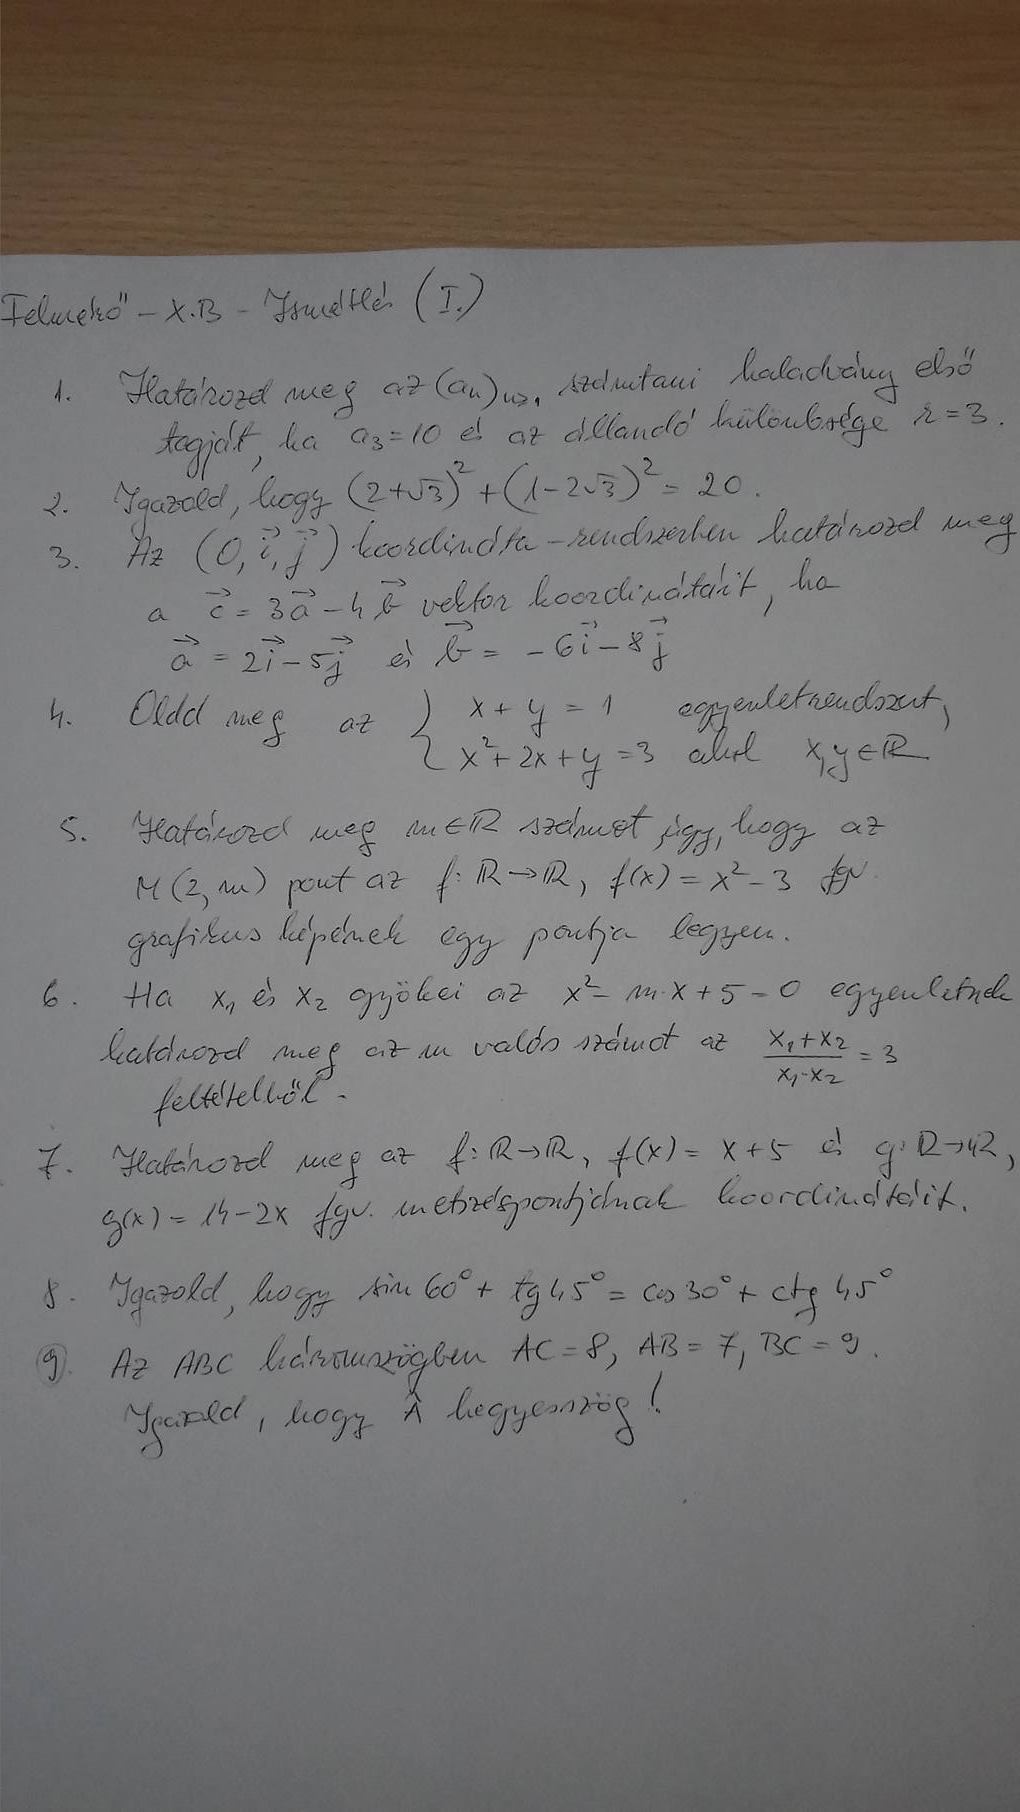 Felmérő – X.B – Ismétlés (I.)
1. Határozd meg az (aₙ)ₙ≥₁ számtani haladvány első
tagját, ha a₃=10 és az állandó különbsége r=3.
2. Igazold, hogy (2+√3)² + (1-2√3)² = 20.
3. Az (O, i⃗, j⃗) koordináta-rendszerben határozd meg
a c⃗ = 3a⃗ – 4b⃗ vektor koordinátáit, ha
a⃗ = 2i⃗ – 5j⃗ és b⃗ = -6i⃗ – 8j⃗
4. Oldd meg az { x + y = 1 egyenletrendszert,
x² + 2x + y = 3 ahol x, y ∈ ℝ
5. Határozd meg m∈ℝ számot úgy, hogy az
M(2, m) pont az f: ℝ→ℝ, f(x) = x² – 3 fgv.
grafikus képének egy pontja legyen.
6. Ha x₁ és x₂ gyökei az x² – m·x + 5 = 0 egyenletnek
határozd meg az m valós számot az (x₁+x₂)/(x₁·x₂) = 3
feltételből.
7. Határozd meg az f: ℝ→ℝ, f(x) = x + 5 és g: ℝ→ℝ,
g(x) = 14 – 2x fgv. metszéspontjának koordinátáit.
8. Igazold, hogy sin 60° + tg 45° = cos 30° + ctg 45°
9. Az ABC háromszögben AC = 8, AB = 7, BC = 9.
Igazold, hogy Â hegyesszög!